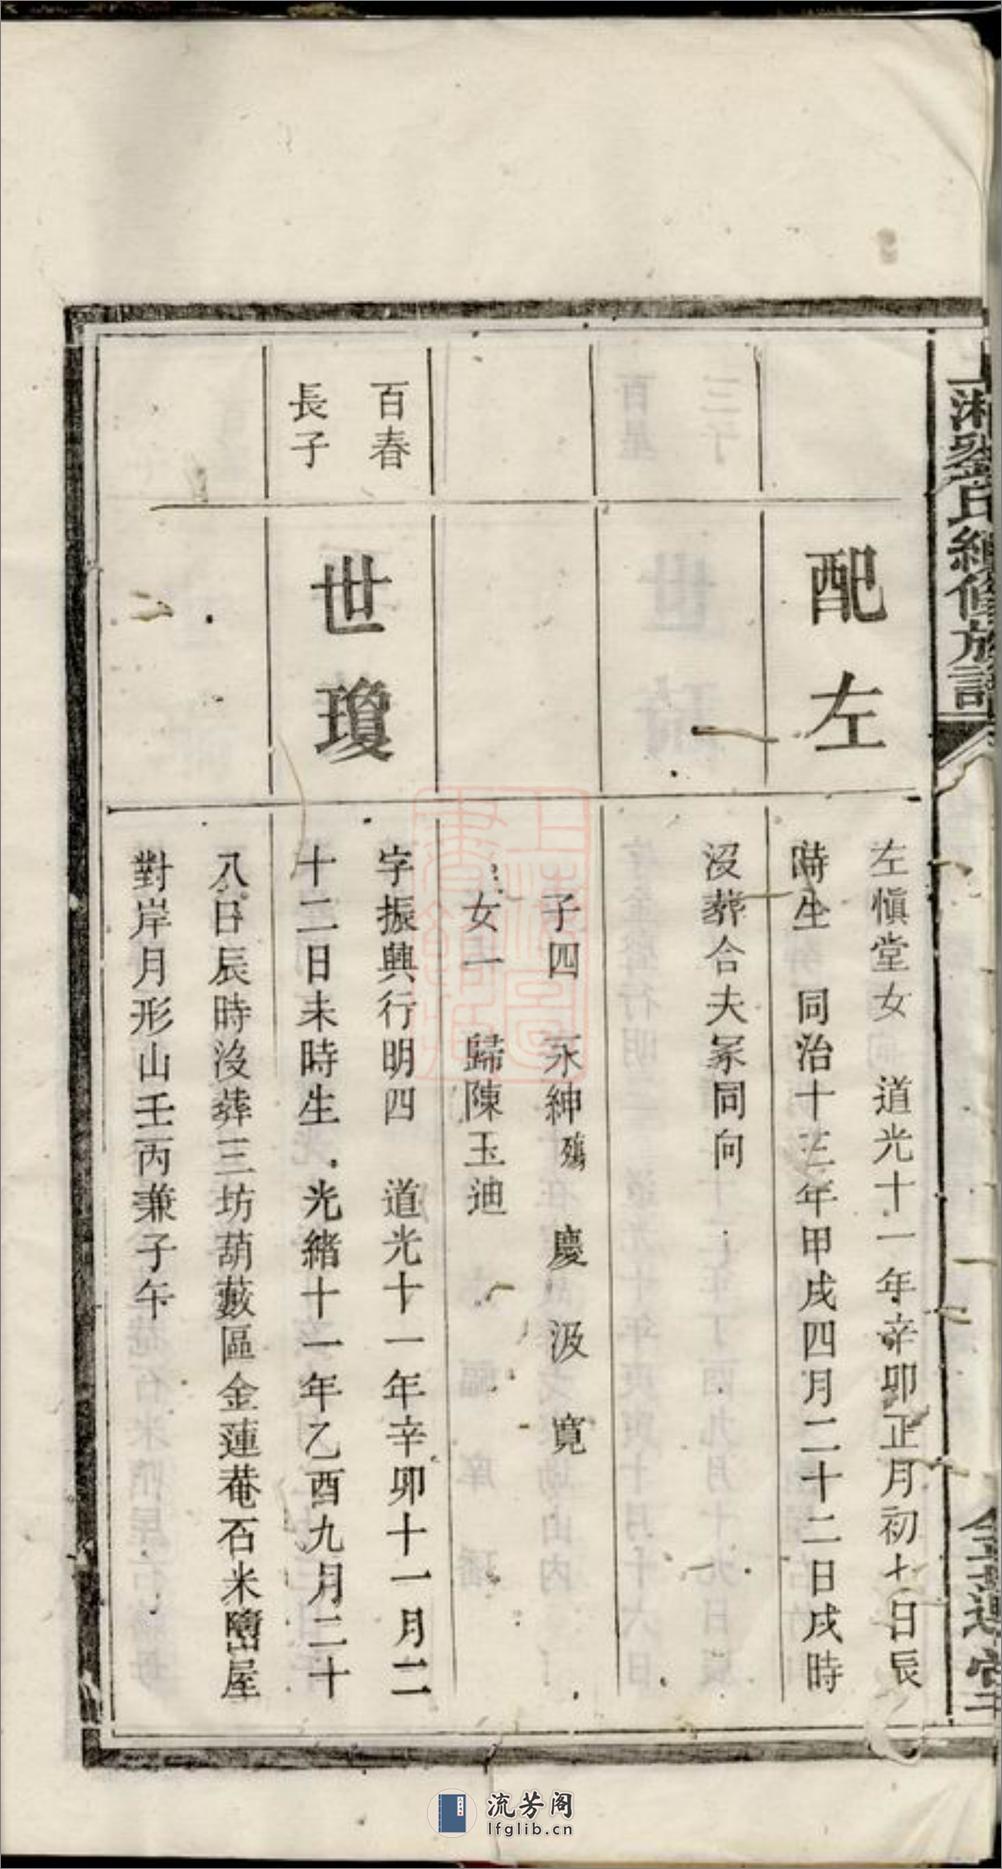 上湘劉氏續修族譜
配左
左愼堂女　道光十一年辛卯正月初七日辰
時生　同治十三年甲戌四月二十二日戌時
沒葬合夫冢同向
子四　永紳殤　慶　汲　寬
女一　歸陳玉迪
百春
長子
世瓊
字振興行明四　道光十一年辛卯十一月二
十二日未時生　光緒十一年乙酉九月二十
八日辰時沒葬三坊葫蔌區金蓮菴石米屋
對岸月形山壬丙兼子午
上海圖書館藏
流芳阁
lfglib.cn